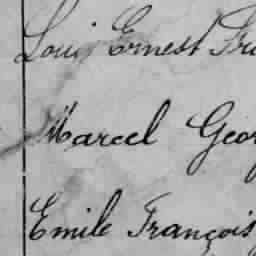 Louis Ernest Fra
Marcel Geor
Emile François